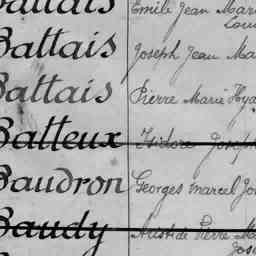 Battais Emile Jean Mar
Loui
Battais Joseph Jean Ma
Battais Pierre Marie Hya
Batteux Isidore Joseph
Baudron Georges Marcel Jo
Baudy Aristide Pierre Ma
Jos